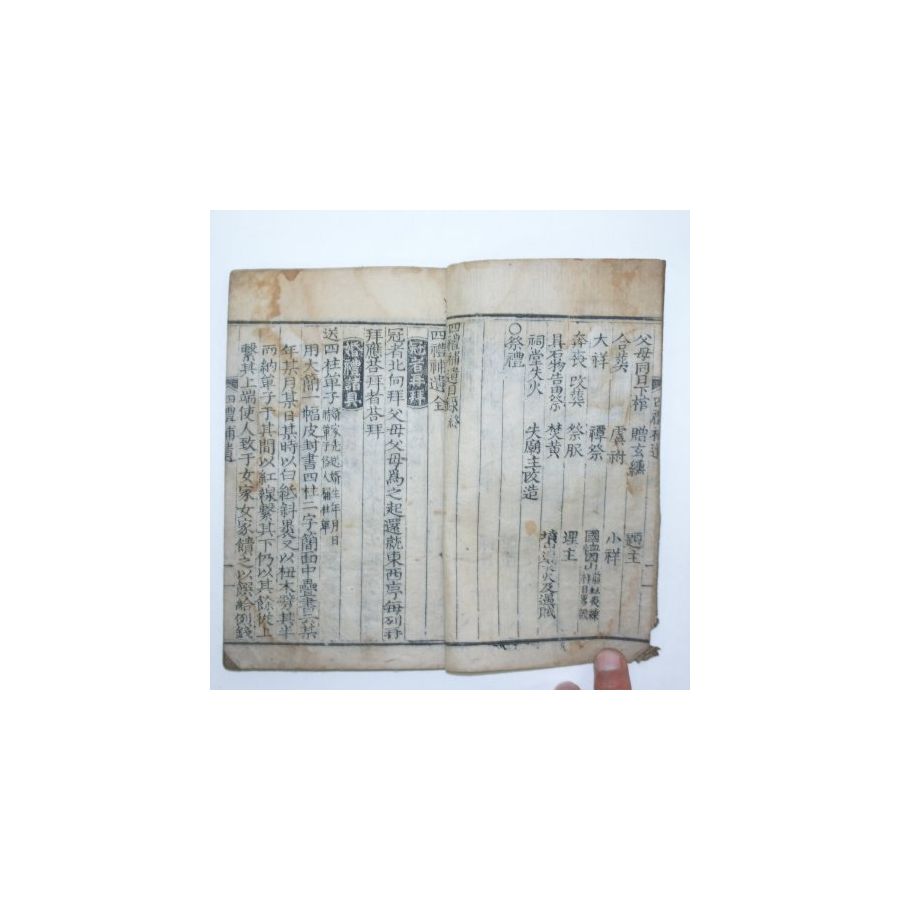 父母同日 棺 贈玄纁 題主
合葬 虞祔 小祥
大祥 禫祭 國恤
奔喪 改葬 祭服 埋主
具石物告祭 焚黃 墳 火及遇賊
祠堂失火 失廟主改造
○祭禮
四禮補遺目錄終
四禮補遺全
冠者拜
冠者北向拜父母父母爲之起還就東西序每列再
拜應答拜者答拜
婚禮諸具
送四柱單子
用大簡一幅皮封書四柱二字簡面中疊書云某
年某月某日某時以白紙斜裹又以杻木劈其半
而納單子于其間以紅線繫其下仍以其餘從上
繫其上端使人致于女家女家饋之以饌給例錢
四禮補遺